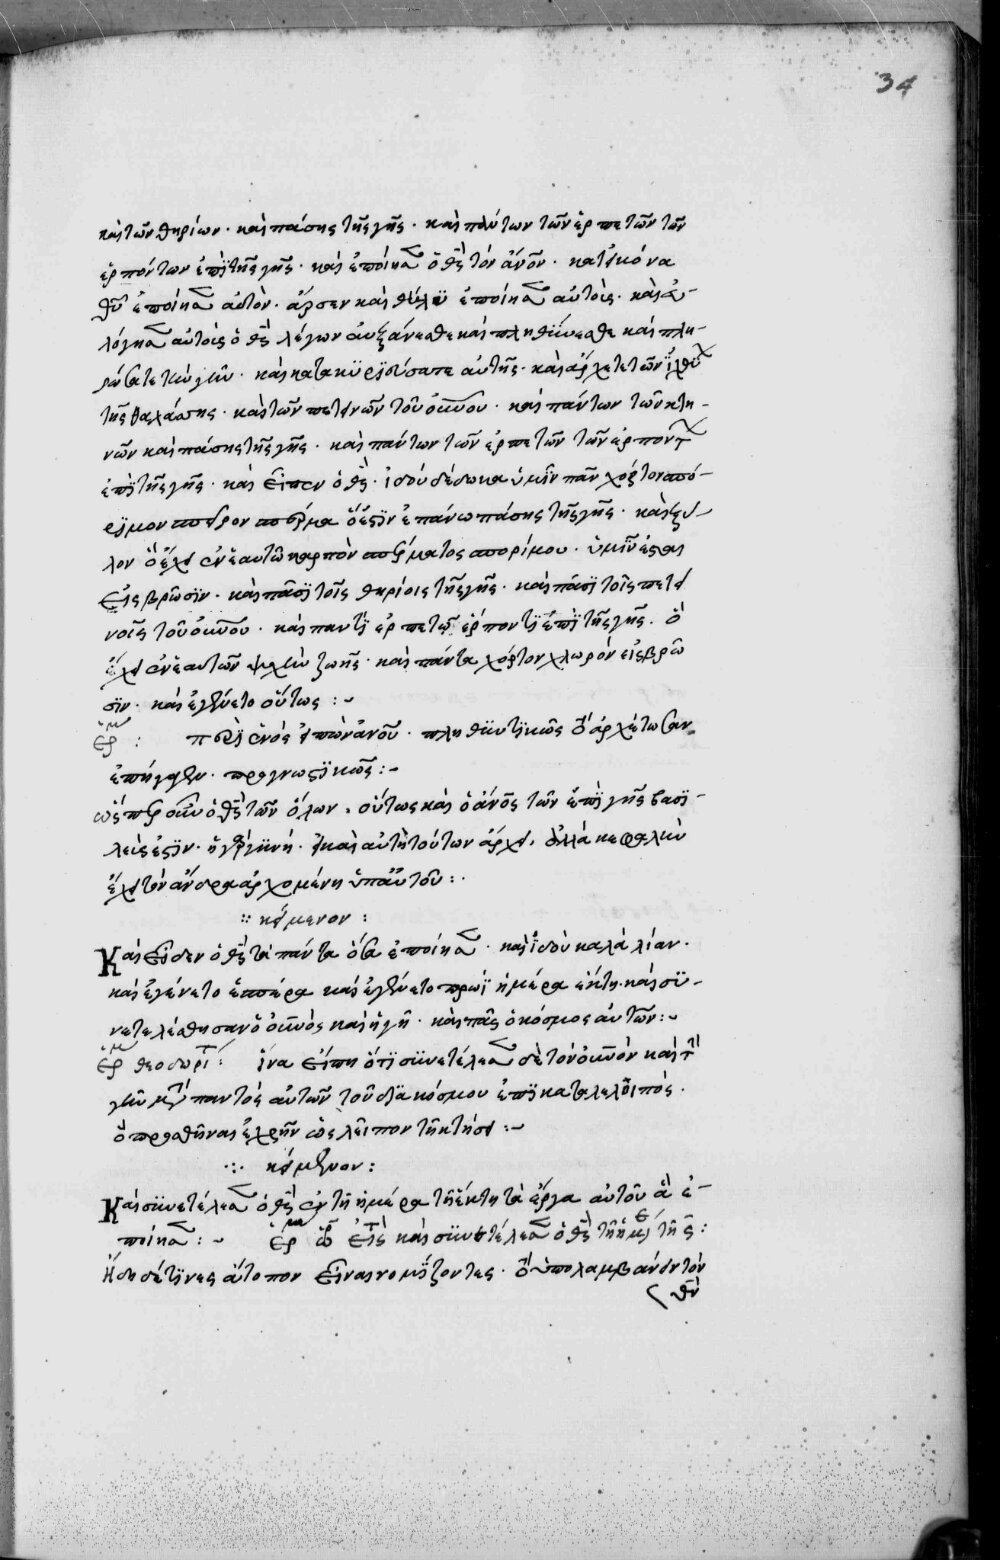 34
καὶ τῶν θηρίων · καὶ πάσης τῆς γῆς · καὶ πάντων τῶν ἑρπετῶν τῶν
ἑρπόντων ἐπὶ τῆς γῆς · καὶ ἐποίησ ὁ θς τὸν ἄνον · κατ εἰκόνα
θυ ἐποίησ αὐτὸν · ἄρσεν καὶ θῆλυ ἐποίησ αὐτοὺς · καὶ εὐ-
λόγησ αὐτοὺς ὁ θς λέγων αὐξάνεσθε καὶ πληθύνεσθε καὶ πλη-
ρώσατε τὴν γῆν · καὶ κατακυριεύσατε αὐτῆς · καὶ ἄρχετε τῶν ἰχθύ
τῆς θαλάσσης · καὶ τῶν πετεινῶν τοῦ οὐνου · καὶ πάντων τῶν κτη-
νῶν καὶ πάσης τῆς γῆς · καὶ πάντων τῶν ἑρπετῶν τῶν ἑρπόντ
ἐπὶ τῆς γῆς · καὶ εἶπεν ὁ θς · ἰδοὺ δέδωκα ὑμῖν πᾶν χόρτον σπό-
ριμον σπεῖρον σπέρμα ὅ ἐστιν ἐπάνω πάσης τῆς γῆς · καὶ ξύ-
λον ὃ ἔχει ἐν ἑαυτῶ καρπὸν σπέρματος σπορίμου · ὑμῖν ἔσται
εἰς βρῶσιν · καὶ πᾶσι τοῖς θηρίοις τῆς γῆς · καὶ πᾶσι τοῖς πετει
νοῖς τοῦ οὐνου · καὶ παντὶ ἑρπετῶ ἕρποντι ἐπὶ τῆς γῆς · ὃ
ἔχει ἐν ἑαυτῶ ψυχὴν ζωῆς · καὶ πάντα χόρτον χλωρὸν εἰς βρῶ
σιν · καὶ ἐγένετο οὕτως : ~
ἑρμ : περὶ ἑνὸς εἰπὼν ἀνου · πληθυντικῶς τὸ ἀρχέτωσαν
ἐπήγαγεν · προγνωστικῶς : ~
ὥσπερ οὖν ὁ θς τῶν ὅλων · οὕτως καὶ ὁ ἄνος τῶν ἐπὶ γῆς βασι-
λεύς ἐστιν · ἡ γυνή · καὶ αὐτὴ τούτων ἄρχει · ἀλλὰ κεφαλὴν
ἔχει τὸν ἄνδρα ἀρχομένη ὑπ αὐτοῦ : ·
:: κείμενον :
Καὶ εἶδεν ὁ θς τὰ πάντα ὅσα ἐποίησ · καὶ ἰδοὺ καλὰ λίαν ·
καὶ ἐγένετο ἑσπέρα καὶ ἐγένετο πρωΐ ἡμέρα ἕκτη · καὶ συ-
νετελέσθησαν ὁ οὐνὸς καὶ ἡ γῆ · καὶ πᾶς ὁ κόσμος αὐτῶν : ~
ἑρμ θεοδωρίτ : ἵνα εἴπη ὅτι συνετέλεσ δὲ τὸν οὐνὸν καὶ τὴ
γῆν μετὰ παντὸς αὐτῶν τοῦ διακόσμου ἐπὶ καταλέλοιπός ·
ὃ προσθῆναι ἐχρῆν ὡς λεῖπον τῆ κτίσει : ~
·:· κείμενον :
Καὶ συνετέλεσ ὁ θς ἐν τῆ ἡμέρα τῆ ἕκτη τὰ ἔργα αὐτοῦ ἃ ἐ-
ποίησ : ~ ἑρμ εἰς τὸ καὶ συνετέλεσ ὁ θς τῆ ἡμέ τῆ ς :
Ἤδη δέ τινες ἄτοπον εἶναι νομίζοντες · τὸ ὑπολαμβάνειν τὸν
θν